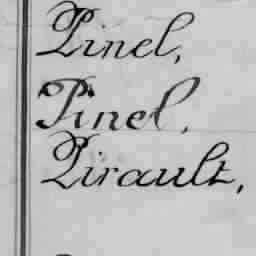 Pinel,
Pinel,
Pirault,